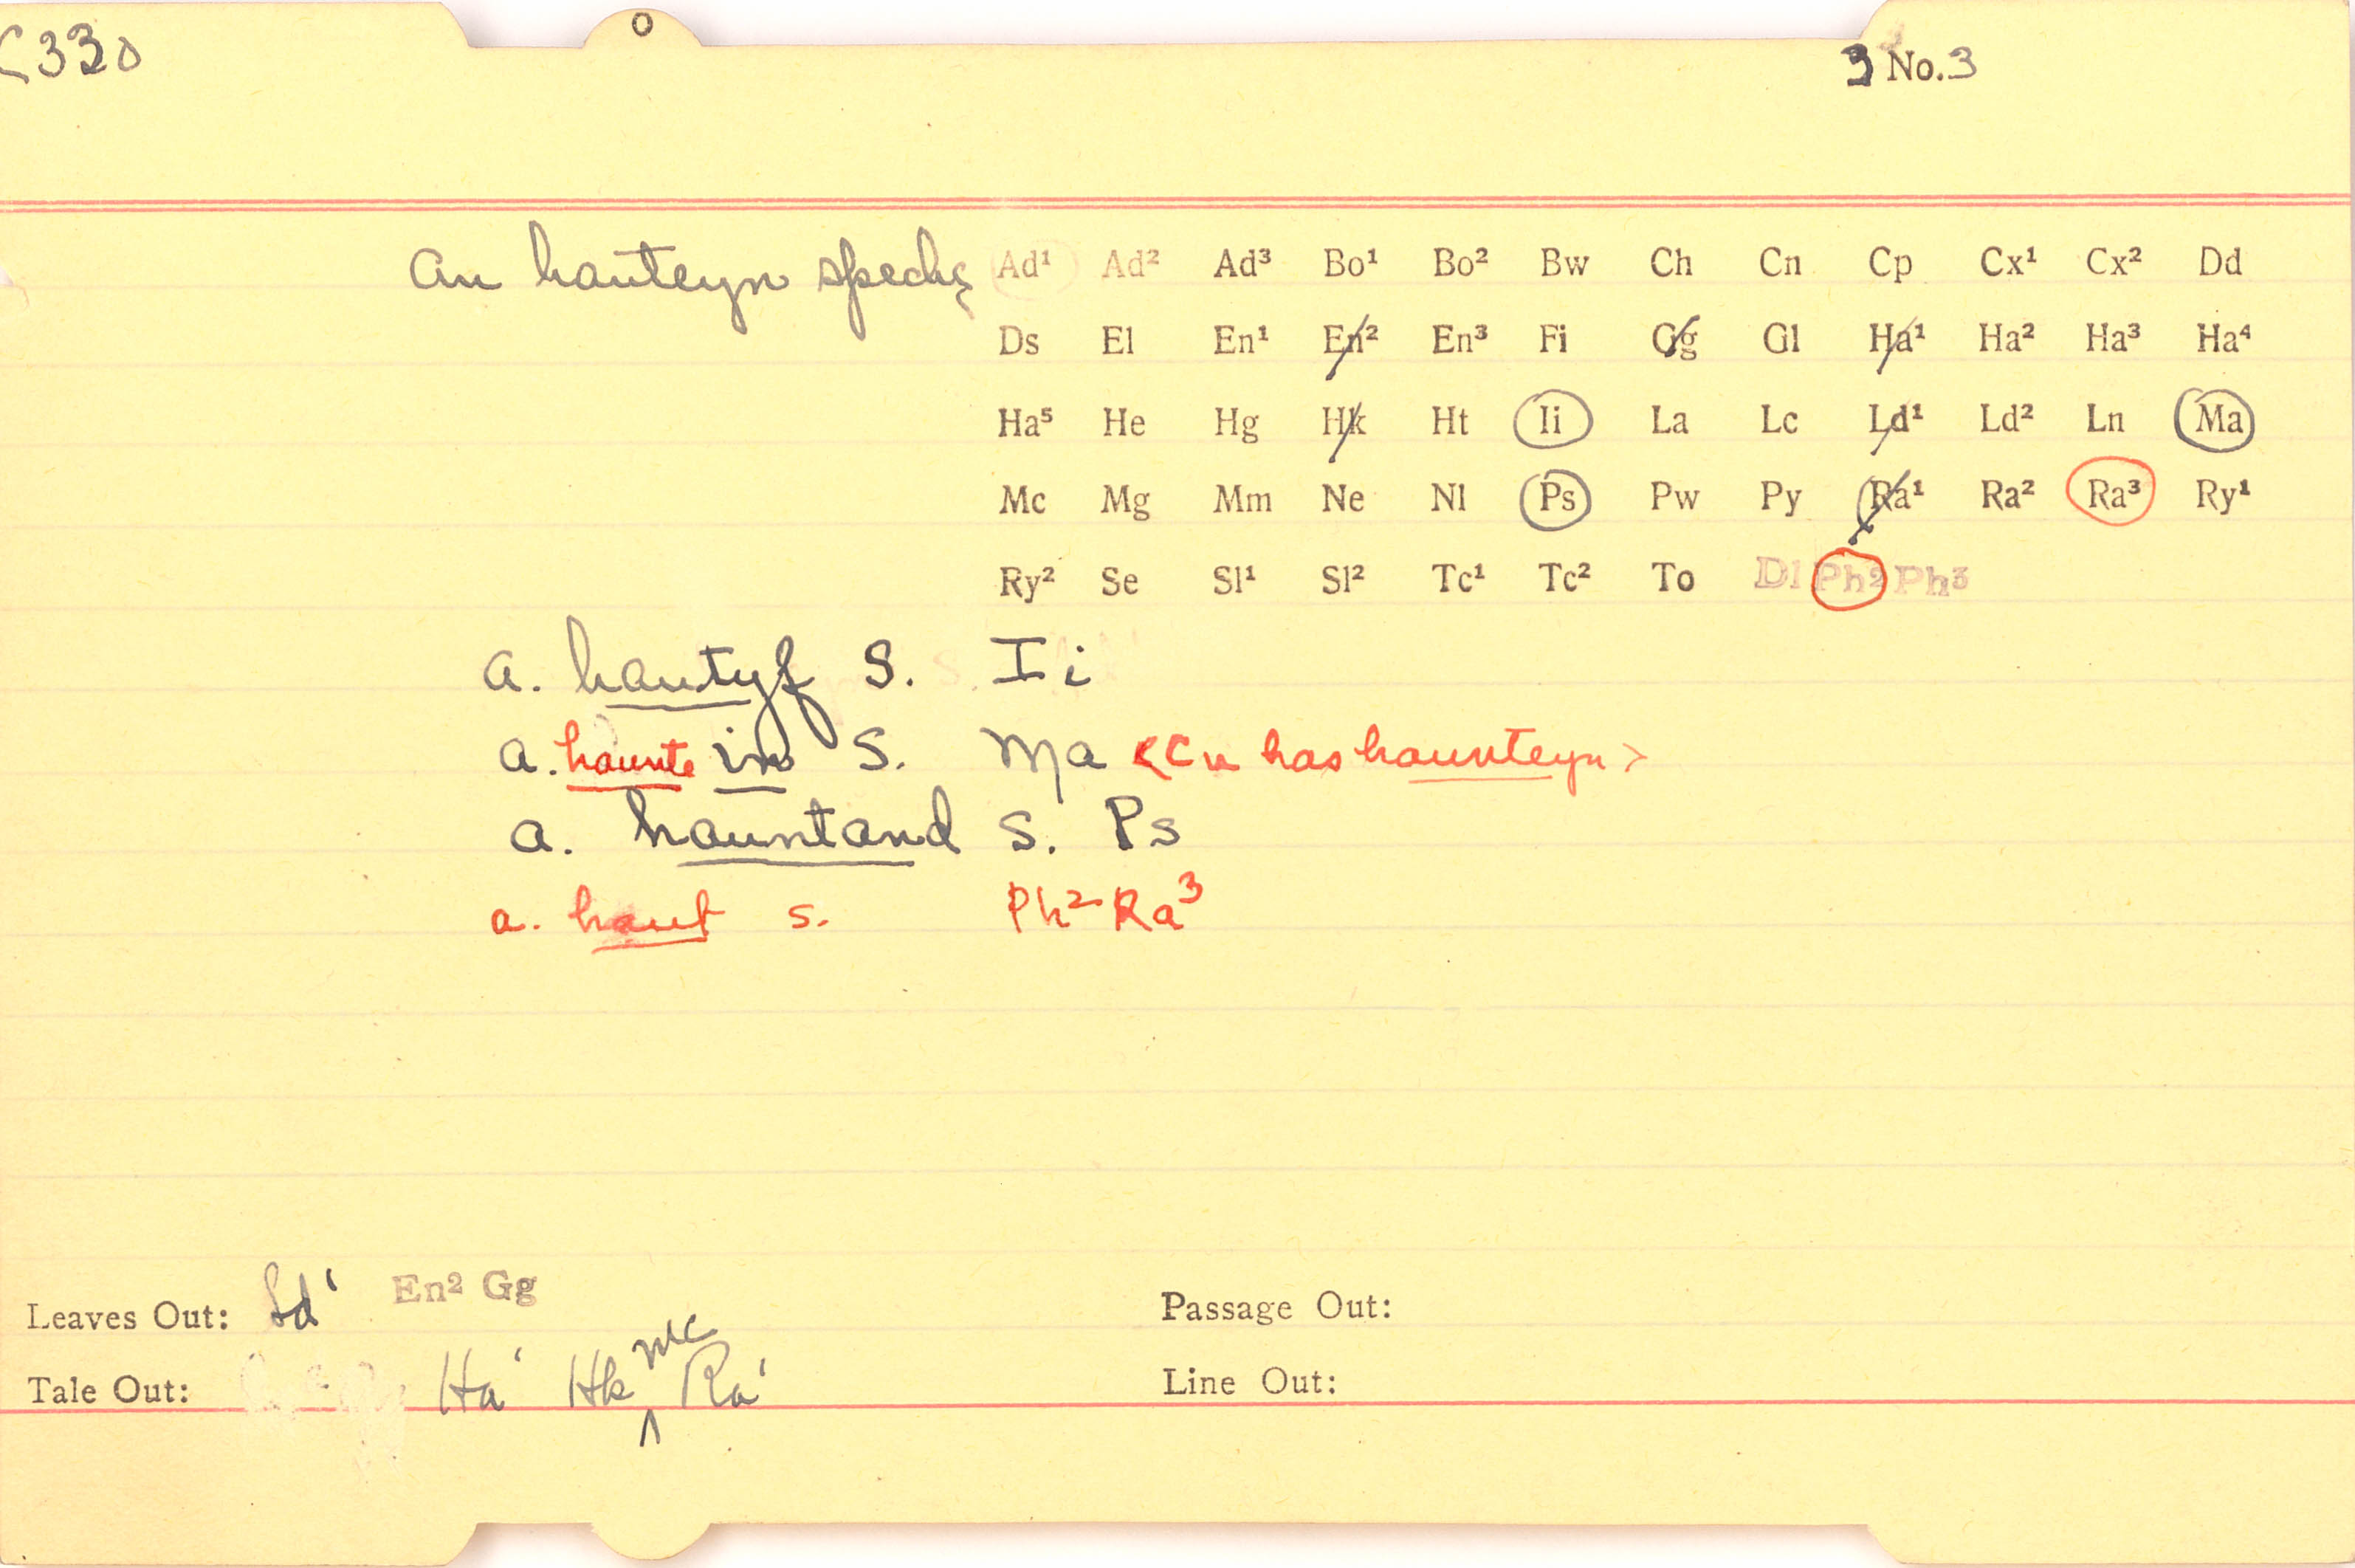 C330
O
3 No. 3
An hauteyn speche
Ad¹ Ad² Ad³ Bo¹ Bo² Bw Ch Cn Cp Cx¹ Cx² Dd
Ds El En¹ En² En³ Fi Gg Gl Ha¹ Ha² Ha³ Ha⁴
Ha⁵ He Hg Hk Ht Ii La Lc Ld¹ Ld² Ln Ma
Mc Mg Mm Ne Nl Ps Pw Py Ra¹ Ra² Ra³ Ry¹
Ry² Se Sl¹ Sl² Tc¹ Tc² To Dl Ph² Ph³
a. hautyf S. Ii
a. haunte in S. Ma <Cn has haunteyn>
a. hauntand S. Ps
a. haut s. Ph² Ra³
Leaves Out: Ld¹ En² Gg
Passage Out:
Tale Out: Ha¹ Hk Mc Ra¹
Line Out: